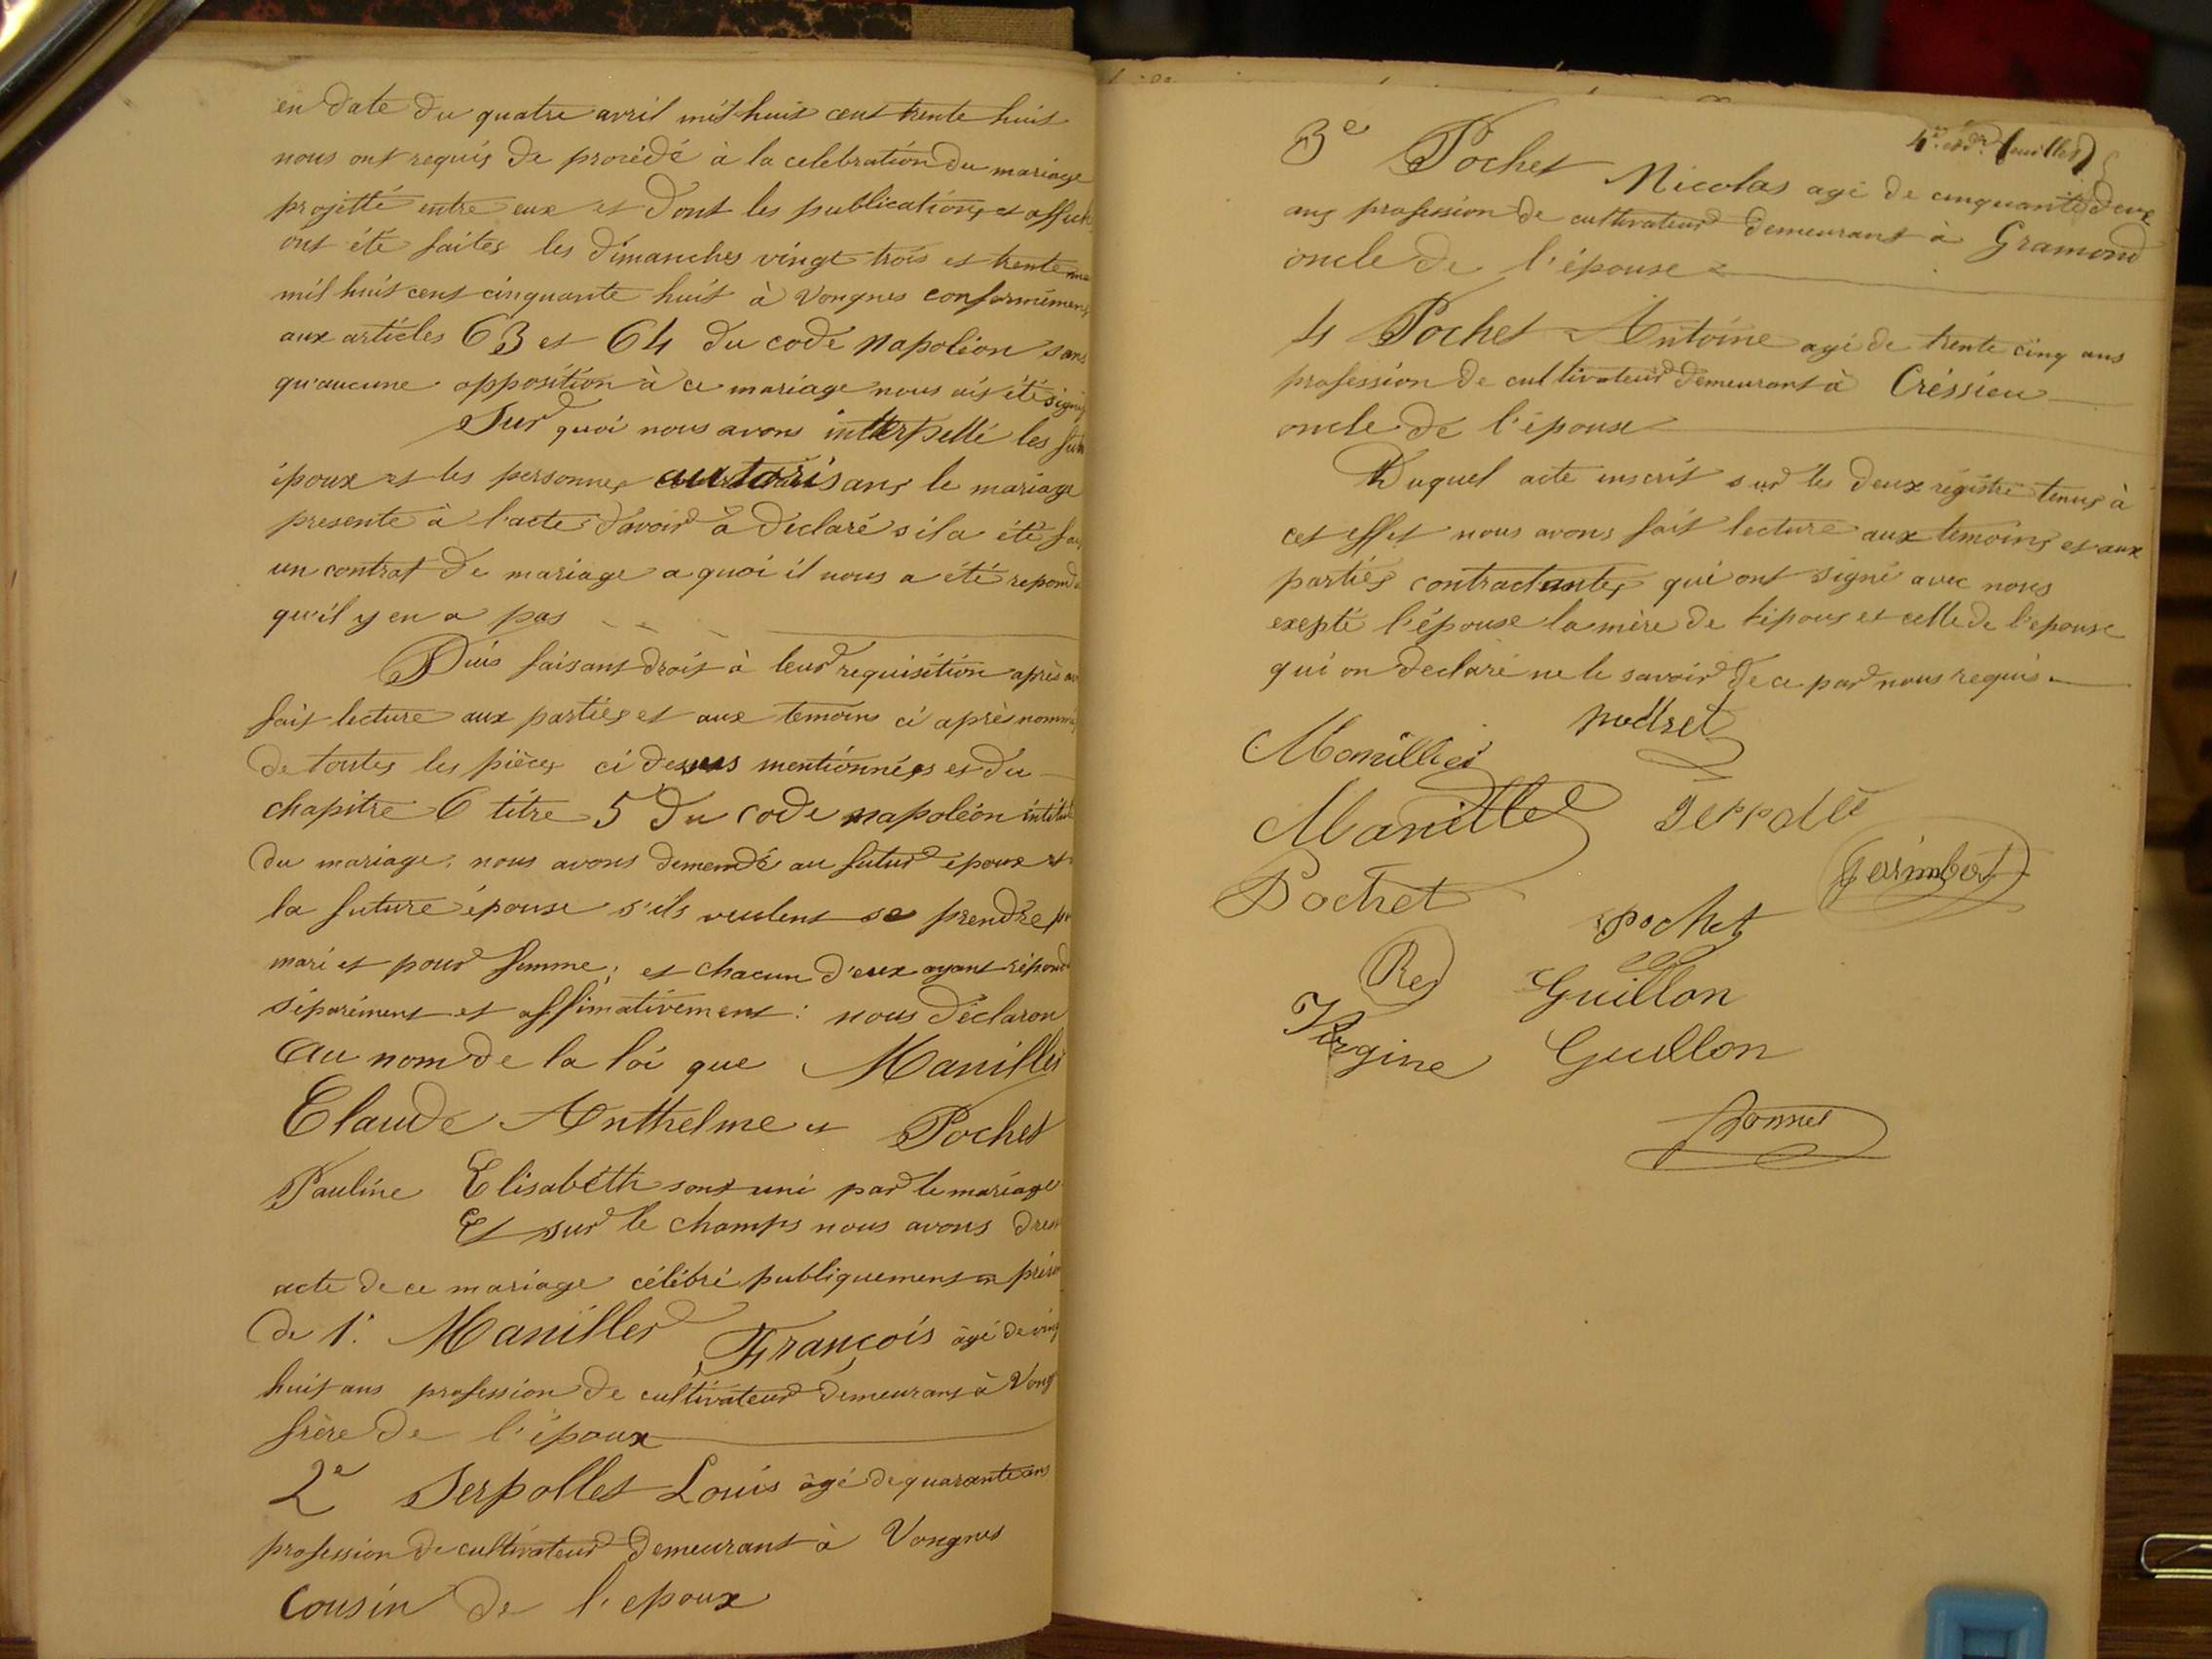 en date du quatre avril mil huit cent trente huit
nous ont requis de procédé à la celebration du mariage
projetté entre eux et dont les publications et affich
ont été faites les dimanches vingt trois et trente mai
mil huit cent cinquante huit à Vongnes conformément
aux articles 63 et 64 du code Napoléon sans
qu'aucune opposition à ce mariage nous ait été signi
Sur quoi nous avons interpellé les futu
époux et les personnes autorisans le mariage
presente à l'acte d'avoir à declaré s'il a été fai
un contrat de mariage a quoi il nous a été repondu
qu'il y en a pas
Puis faisant droit à leur requisition après av
fait lecture aux parties et aux temoins ci aprè nommé
de toutes les pièces ci dessus mentionnées et du
chapitre 6 titre 5 du code napoléon intitul
du mariage, nous avons demendé au futur époux et
la future épouse s'ils veulent se prendre po
mari et pour femme; et chacun d'eux ayant répond
séparément et affimativement: nous déclaron
au nom de la loi que Manillier
Claude Anthelme et Pochet
Pauline Elisabéth sont uni par le mariage
Et sur le champs nous avons dress
acte de ce mariage célébré publiquement en prése
de 1.° Manillier François âgé de ving
huit ans profession de cultivateur demeurant à Vong
frère de l'époux
2e Serpollet Louis âgé de quarante ans
profession de cultivateur demeurant à Vongnes
cousin de l'epoux
4e et dr feuillet
3e Pochet Nicolas agé de cinquante deux
ans profession de cultivateur demeurant à Gramond
oncle de l'épouse
4 Pochet Antoine agé de trente cinq ans
profession de cultivateur demeurant à Créssieu
oncle de l'épouse
Duquel acte inscrit sur les deux régistre tenus à
cet effet nous avons fait lecture aux temoins et aux
parties contractantes qui ont signé avec nous
exepté l'épouse la mère de l'époux et celle de l'epouse
qui on declaré ne le savoir de ce par nous requis
Manillier
Manillier
Pochet
Pochet
Rey Guillon
Virgine Guillon
Bonnet